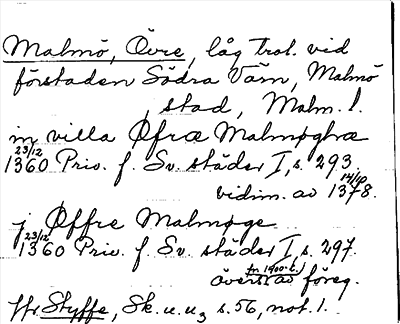 Malmö, Övre, låg trol. vid
förstaden Södra Värn, Malmö
stad, Malm. l.
in villa Øfræ Malmøghæ
23/12 1360 Priv. f. Sv. städer I, s. 293.
vidim. av 14/10 1378.
j Øffre Malmøge
23/12 1360 Priv. f. Sv. städer I, s. 297.
övers. av föreg. fr. 1400-t.
Jfr Styffe, Sk. u. u3 s. 56, not. 1.